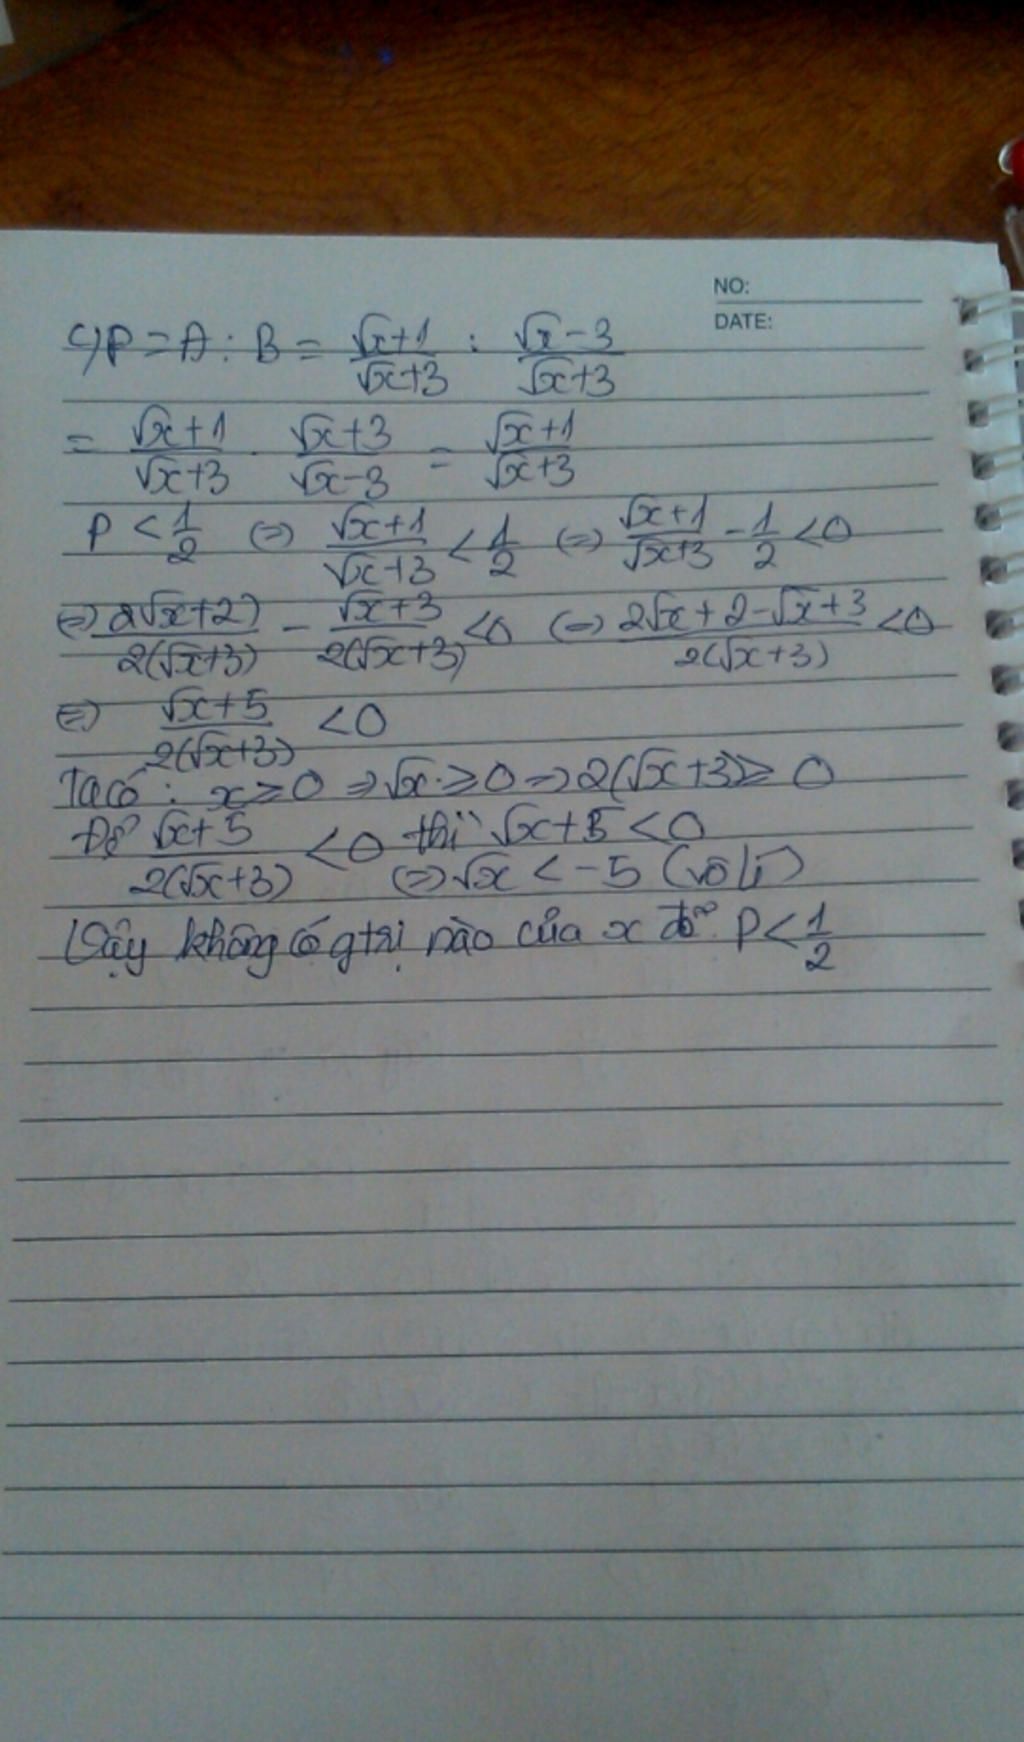 NO:
DATE:
c) P = A : B = √x+1/√x+3 : √x-3/√x+3
= √x+1/√x+3 . √x+3/√x-3 = √x+1/√x+3
P < 1/2 (=) √x+1/√x+3 < 1/2 (=) √x+1/√x+3 - 1/2 < 0
(=) 2√x+2)/2(√x+3) - √x+3/2(√x+3) < 0 (=) 2√x+2-√x+3/2(√x+3) < 0
(=) √x+5/2(√x+3) < 0
Ta có : x ≥ 0 => √x ≥ 0 => 2(√x+3) ≥ 0
Để √x+5/2(√x+3) < 0 thì √x+5 < 0
(=) √x < -5 (vô lí)
Vậy không có gtrị nào của x để P < 1/2